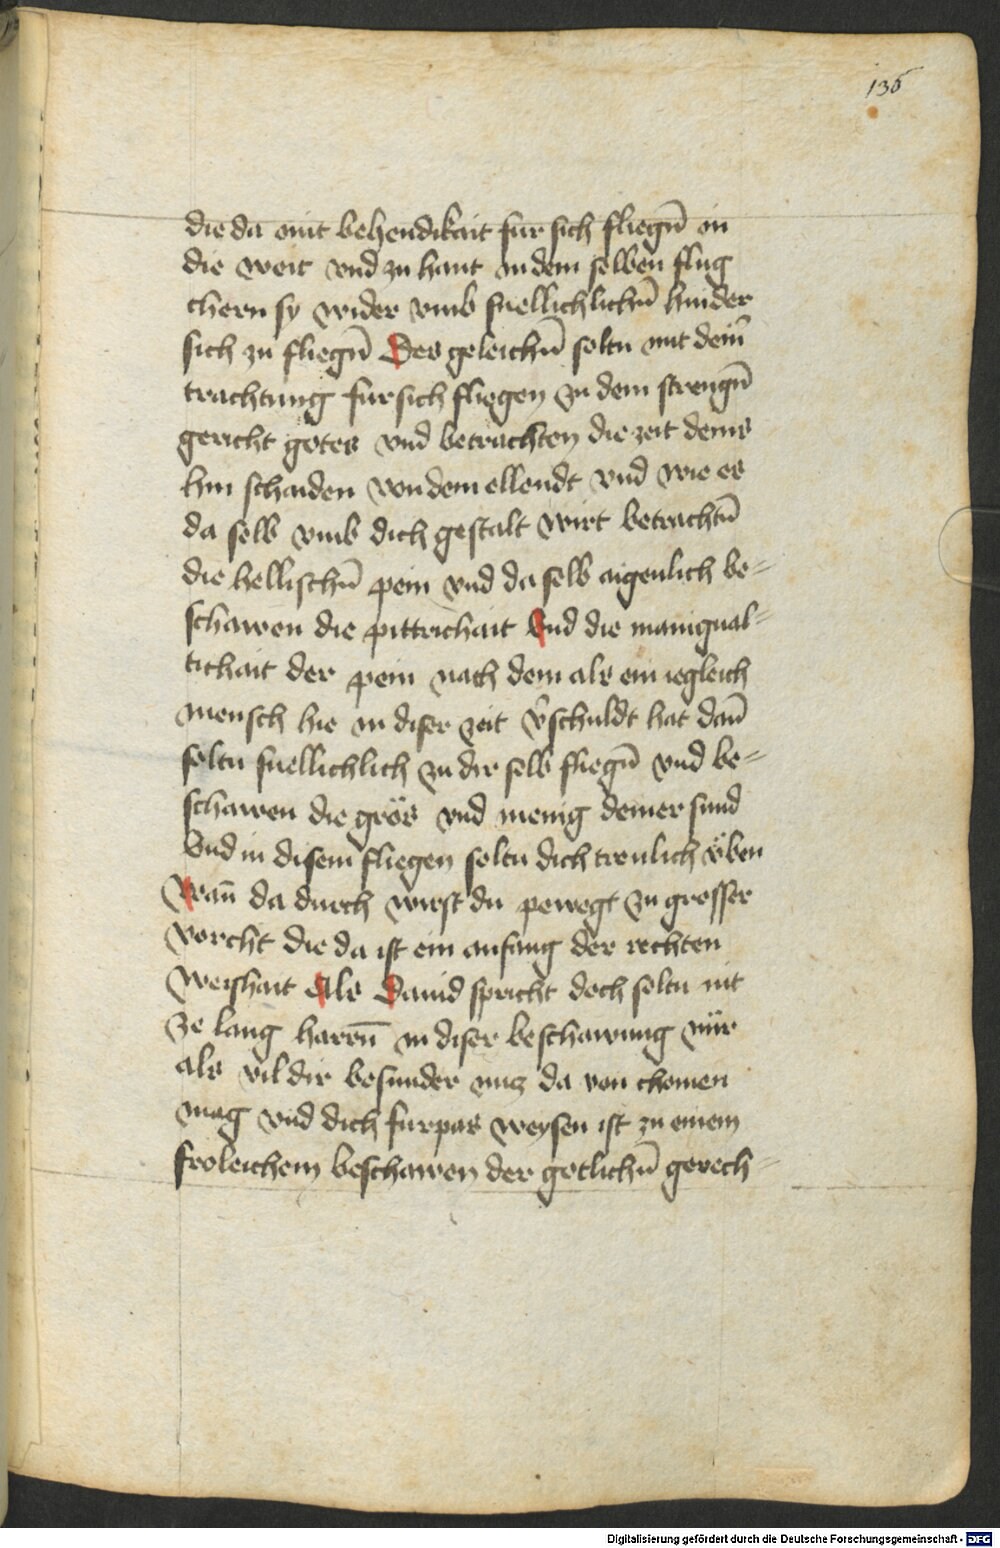 135
die da mit behendikait fur sich fliegn̄ in
die weit vnd zu hant in dem selben flug
chern sy wider vmb snellichlichn̄ hinder
sich zu fliegn̄ Des geleichn̄ soltu mit dein̄
trachtung fursich fliegen zu dem strengn̄
gericht gotes vnd betrachten die zeit deins
hin schaiden von dem ellendt vnd wie es
da selb vmb dich gestalt wirt betrachtn̄
die hellischn̄ pein vnd da selb aigenlich be=
schawen die pittrichait Vnd die manigual=
tichait der pein nach dem als ein iegleich
mensch hie in diser zeit v̄schuldt hat dan̄
soltu snellichlich zu dir selb fliegn̄ vnd be=
schawen die grös vnd menig deiner sund
Vnd in disem fliegen soltu dich trewlich vͤben
Wan̄ da durch wirst du pewegt zu grosser
vorcht die da ist ein anfang der rechten
Weishait Als Dauid spricht doch soltu nit
ze lang harrn̄ in diser beschawung nür
als vil dir besunder nucz da von chomen
mag vnd dich furpas weysen ist zu einem
froleichem beschawen der gotlichn̄ gerech=
Digitalisierung gefördert durch die Deutsche Forschungsgemeinschaft - DFG